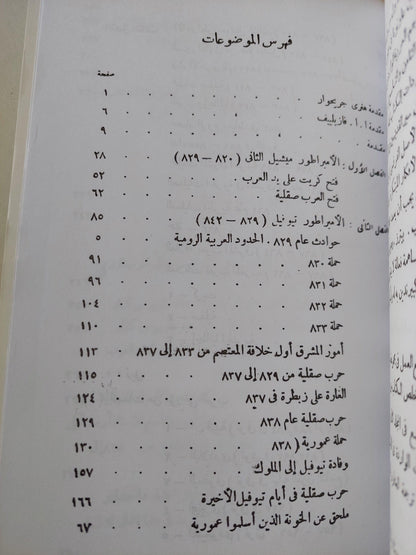 فهرس الموضوعات
صفحة
مقدمة هنرى جريجوار . . . . . . ١
مقدمة ا . ا . فازيلييف . . . . . . ٦
مقدمة . . . . . . ٩
الفصل الأول : الأمبراطور ميشيل الثانى (٨٢٠ — ٨٢٩) . ٢٨
فتح كريت على يد العرب . . . . ٥٢
فتح العرب صقلية . . . . . ٦٢
الفصل الثانى : الأمبراطور تيوفيل (٨٢٩ — ٨٤٢) . ٨٥
حوادث عام ٨٢٩ . الحدود العربية الرومية . . ٥
حملة ٨٣٠ . . . . . . ٩١
حملة ٨٣١ . . . . . . ٩٦
حملة ٨٣٢ . . . . . . ١٠٤
حملة ٨٣٣ . . . . . . ١١٠
أمور المشرق أول خلافة المعتصم من ٨٣٣ إلى ٨٣٧ . ١١٣
حرب صقلية من ٨٢٩ إلى ٨٣٧ . . . ١١٥
الغارة على زبطرة فى ٨٣٧ . . . . ١٢٤
حرب صقلية عام ٨٣٨ . . . . ١٢٩
حملة عمورية ( ٨٣٨ . . . . . ١٣٠
وفادة تيوفيل إلى الملوك . . . . ١٥٧
حرب صقلية فى أيام تيوفيل الأخيرة . . . ١٦٦
ملحق عن الخونة الذين أسلموا عمورية . . . ٦٧